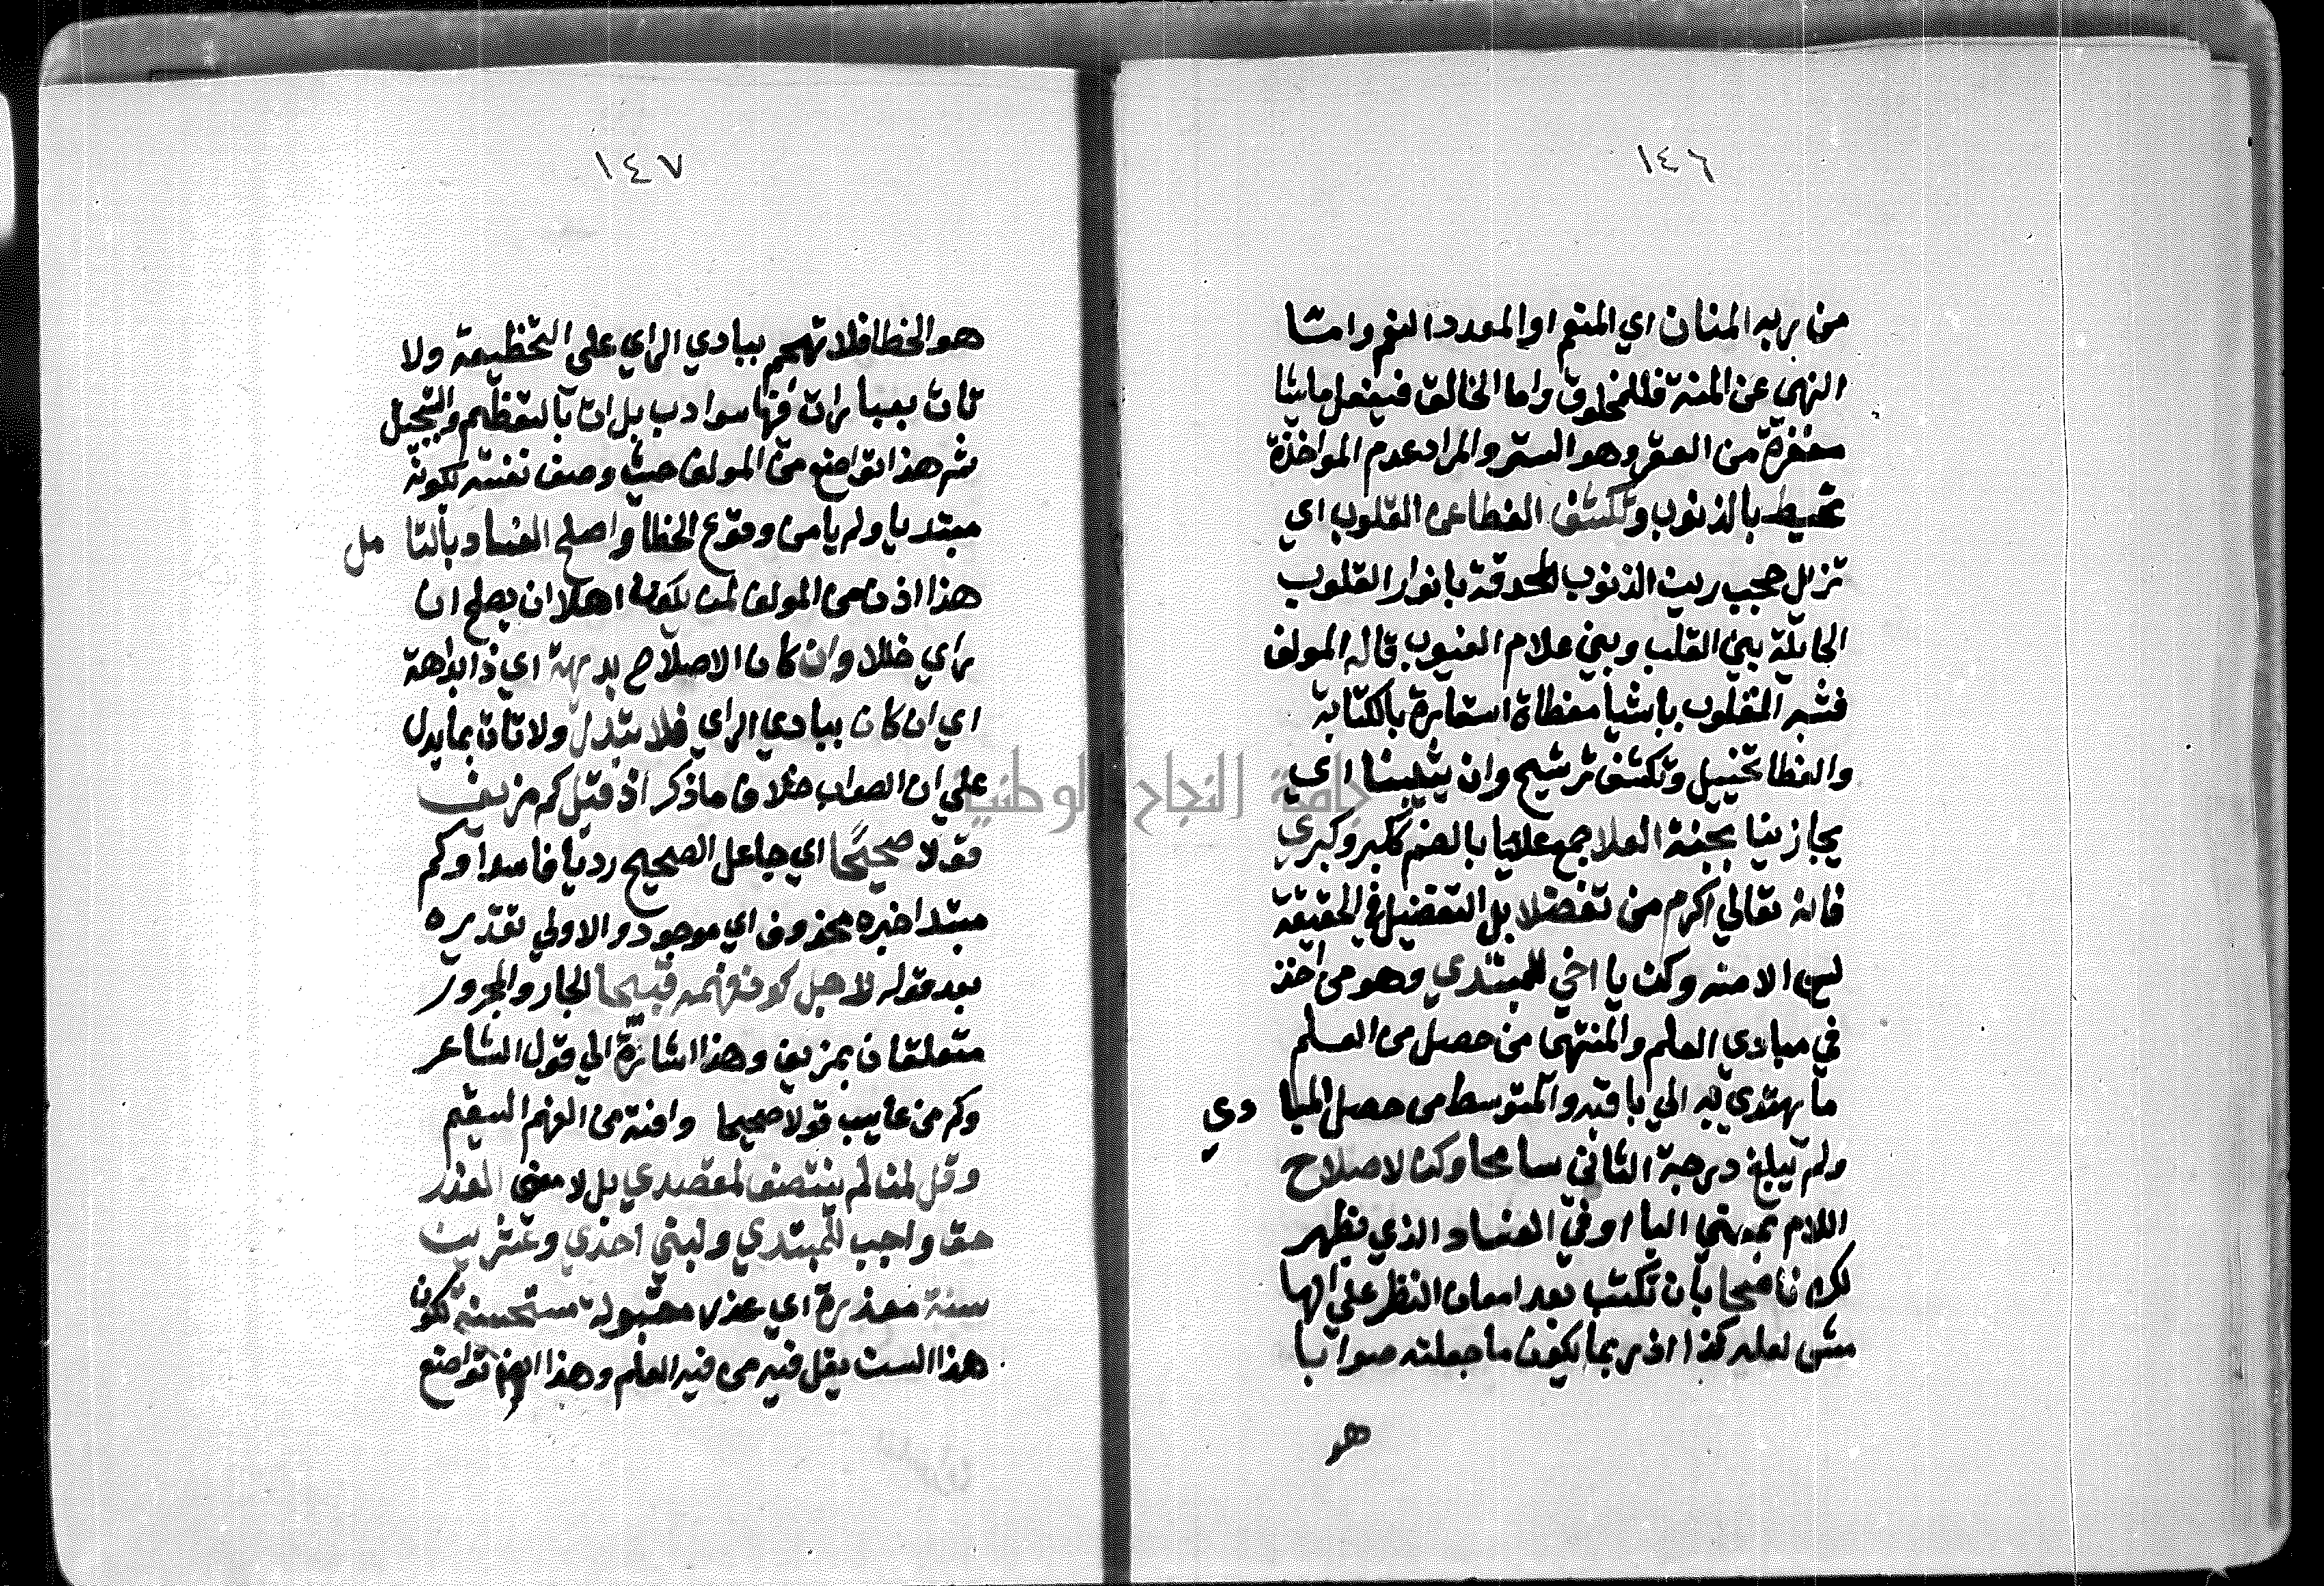 ١٤٦
من ربه المنان اي المنعم او المعدد النعم واما
النهي عن المنة فللمخلوق واما الخالق فيفعل ما يشا
مغفرة من الغفر وهو الستر والمراد عدم المواخذة
تحيط بالذنوب وتكشف الغطا عن القلوب اي
تزيل حجب رين الذنوب المحدقة بانوار القلوب
الحايلة بين القلب وبين علام الغيوب قاله المولف
فشبه القلوب باشيا مغطاة استعارة بالكناية
والغطا تخييل وتكشف ترشيح وان يثيبنا اي
يجازينا بجنة العلا جمع عليا بالضم ككبر وكبري
فانه تعالي اكرم من تفضلا بل التفضيل في الحقيقة
ليس الا منه وكن يا اخي للمبتدي وهو من اخذ
في مبادي العلم والمنتهي من حصل من العلم
ما يهتدي به الي باقيه والمتوسط من حصل المبا دي
ولم يبلغ درجة الثاني سامحا وكن لاصلاح
اللام بمعني البا او في الفساد الذي يظهر
لك ناصحا بان تكتب بعد امعان النظر علي الها
مش لعله كذا اذ ربما يكون ما جعلته صوابا
هو
١٤٧
هو الخطا فلا تهجم ببادي الراي علي التخطيئة ولا
تات بعبارات فيها سوا دب بل ات بالتعظيم والتبجيل
ثم هذا تواضع من المولف حيث وصف نفسه بكونه
مبتديا ولم يا من وقوع الخطا واصلح الفساد بالتا مل
هذا اذن من المولف لمن يكون اهلا ان يصلح ان
راي خللا وان كان الاصلاح بديهة اي ذا بداهة
اي ان كان ببادي الراي فلا تبدل ولا تات بما يدل
علي ان الصواب خلاف ما ذكر اذ قيل كم مزيف
قولا صحيحا اي جاعل الصحيح رديا فاسدا وكم
مبتدا خبره محذوف اي موجود والاولي تقديره
بعد قوله لاجل كون فهمه قبيحا الجار والمجرور
متعلقان بمزيف وهذا اشارة الي قول الشاعر
وكم من عايب قولا صحيحا وافته من الفهم السقيم
وقل لمن لم ينتصف لمقصدي بل لا مني العذر
حق واجب للمبتدي ولبني احدي وعشرين
سنة معذرة اي عذر مقبولة مستحسنة لكون
هذا السن يقل فيه من فيه العلم وهذا ايضا تواضع